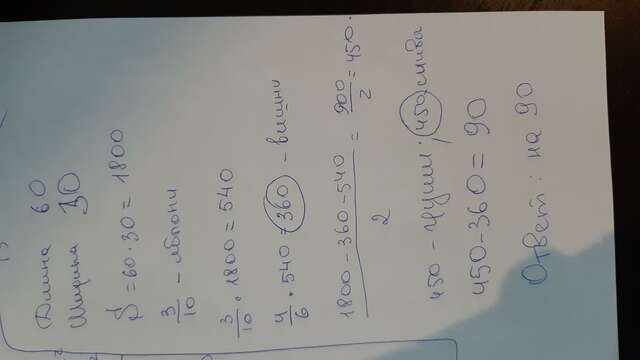 Длина 60
Ширина 30
S = 60 · 30 = 1800
3/10 - яблони
3/10 · 1800 = 540
4/6 · 540 = 360 - вишни
(1800 - 360 - 540)/2 = 900/2 = 450.
450 - груши; 450 слива
450 - 360 = 90
Ответ: на 90